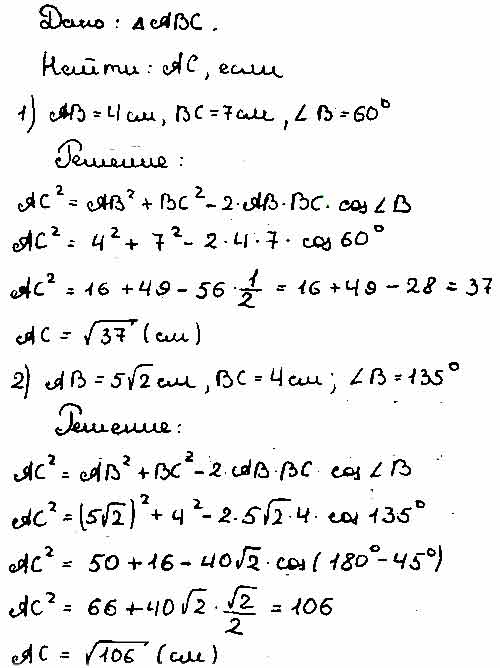 Дано: △ABC.
Найти: AC, если
1) AB = 4 см, BC = 7 см, ∠B = 60°
Решение:
AC² = AB² + BC² - 2·AB·BC· cos∠B
AC² = 4² + 7² - 2·4·7· cos 60°
AC² = 16 + 49 - 56·1/2 = 16 + 49 - 28 = 37
AC = √37 (см)
2) AB = 5√2 см, BC = 4 см; ∠B = 135°
Решение:
AC² = AB² + BC² - 2·AB·BC· cos∠B
AC² = (5√2)² + 4² - 2·5√2·4· cos 135°
AC² = 50 + 16 - 40√2· cos(180° - 45°)
AC² = 66 + 40√2·√2/2 = 106
AC = √106 (см)